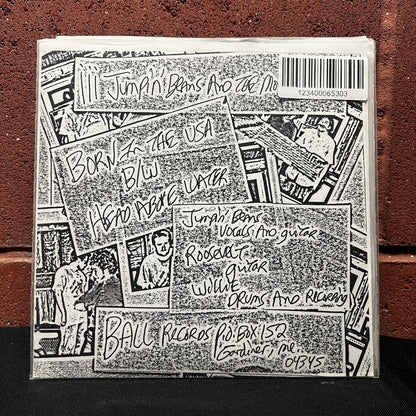 Jumpin' Beans And The Mo
123400065303
Born In The USA
B/W
Head Above Water
Jumpin' Beans
Vocals And guitar
Roosevelt
guitar
Willie
Drums And Recording
Ball Records P.O. Box 152
Gardiner, me.
04345